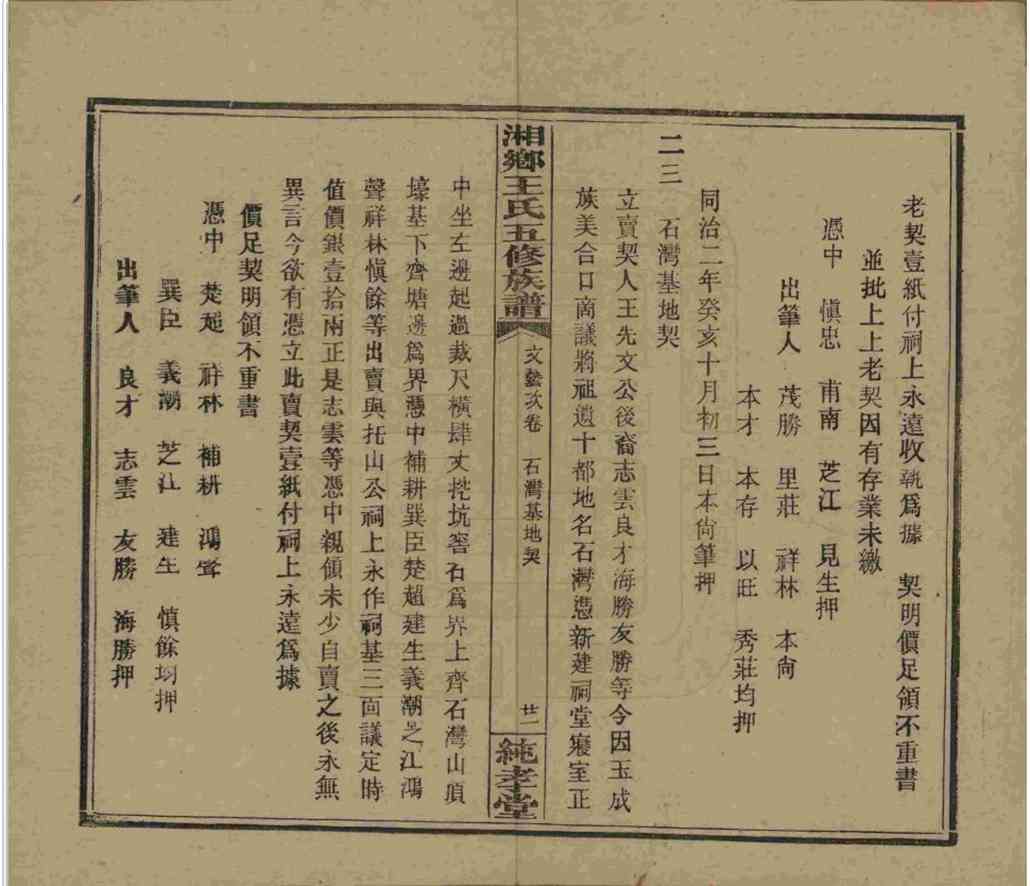 老契壹紙付祠上永遠收執爲據 契明價足領不重書
並批上上老契因有存業未繳
憑中 愼忠 甫南 芝江 見生押
出筆人 茂勝 里莊 祥林 本尙
本才 本存 以旺 秀莊均押
同治二年癸亥十月初三日本尙筆押
二三 石灣基地契
立賣契人王先文公後裔志雲良才海勝友勝等今因玉成
族美合口商議將祖遺十都地名石灣憑新建祠堂寢室正
湘鄉王氏五修族譜 文藝次卷 石灣基地契 廿二 純孝堂
中坐左邊起過裁尺橫肆丈挖坑窖石爲界上齊石灣山頂
壕基下齊塘邊爲界憑中補耕巽臣楚超建生義潮芝江鴻
聲祥林愼餘等出賣與托山公祠上永作祠基三面議定時
值價銀壹拾兩正是志雲等憑中親領未少自賣之後永無
異言今欲有憑立此賣契壹紙付祠上永遠爲據
價足契明領不重書
憑中 楚超 祥林 補耕 鴻聲
巽臣 義潮 芝江 建生 慎餘均押
出筆人 良才 志雲 友勝 海勝押